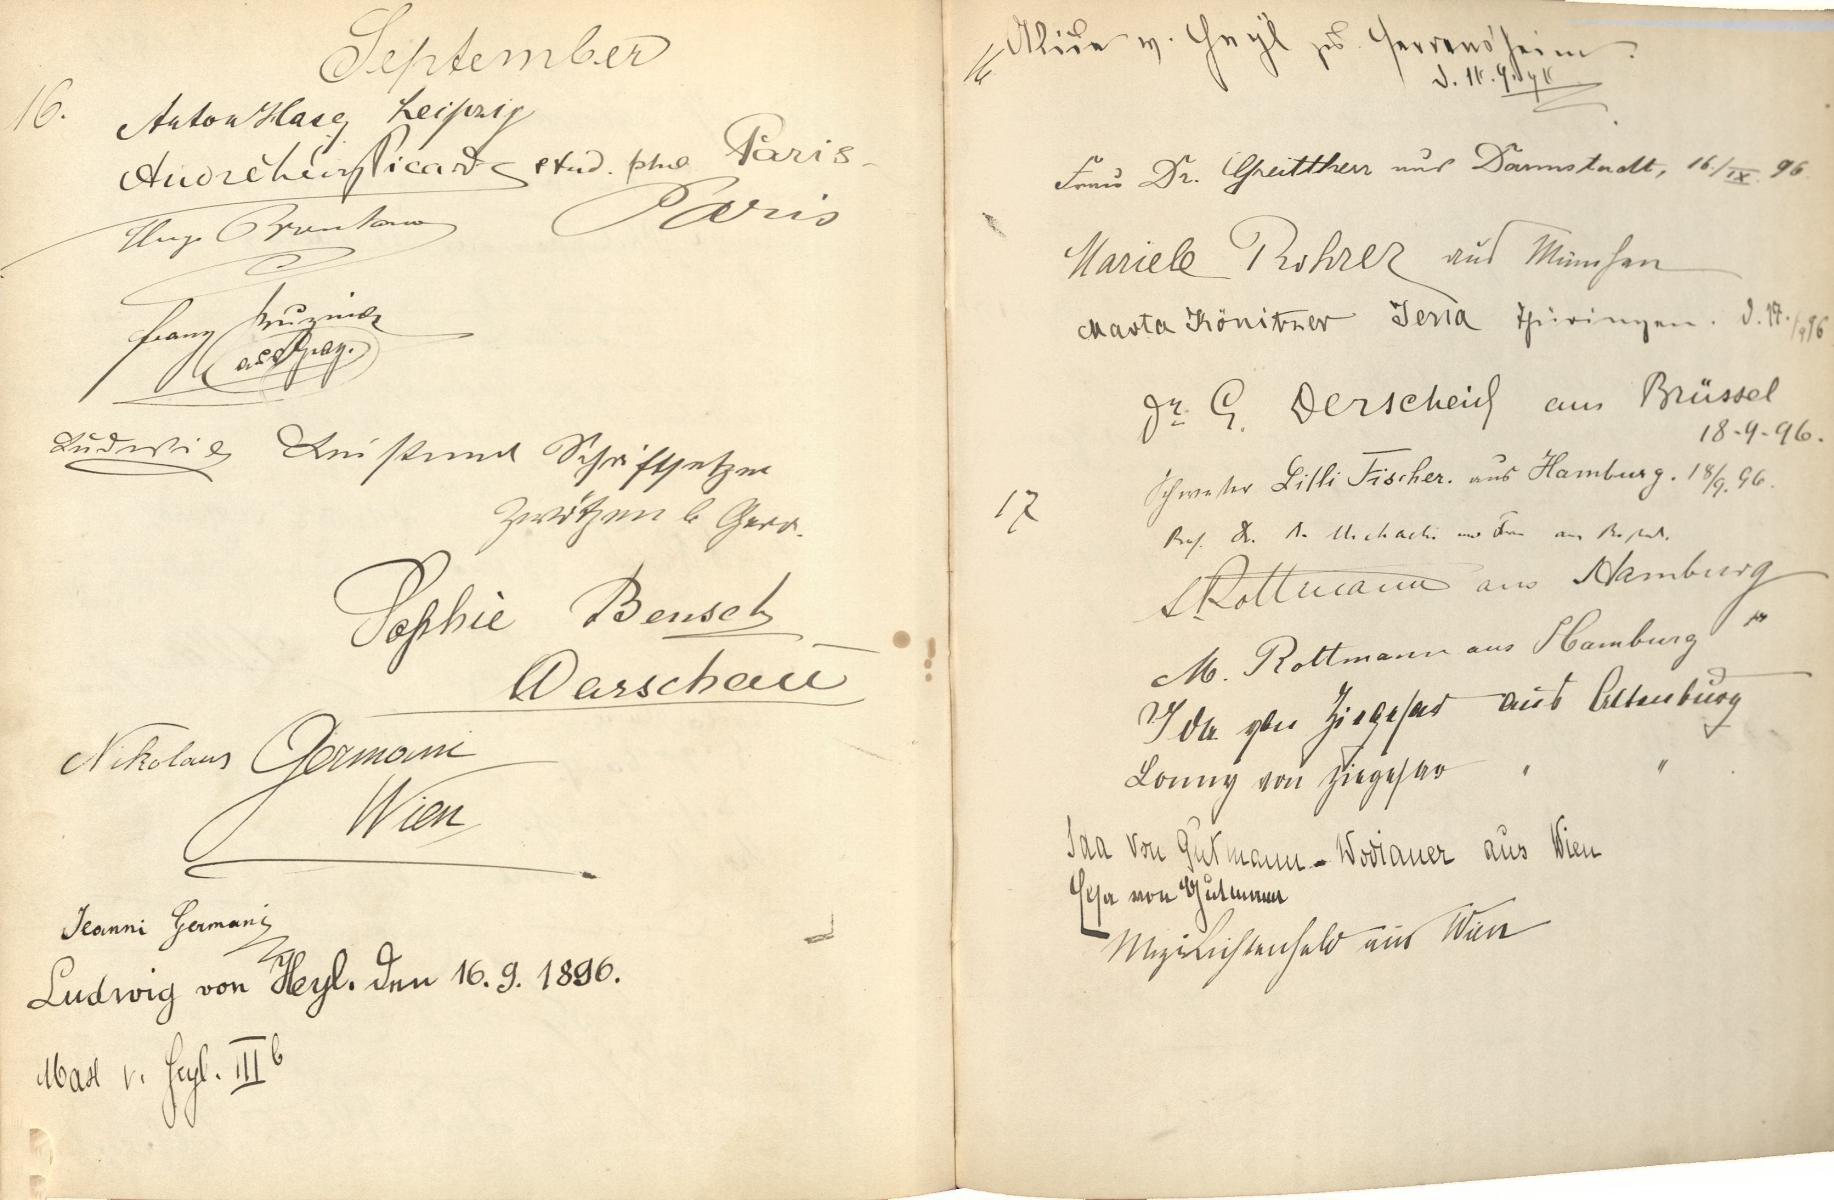 September
16.
Anton Hase Leipzig
Picard stud. phil Paris
Paris
Hugo Brentano
Franz
aus Graz.
Ludwig Schriftsetzer
Zwötzen b Gera.
Sophie Bensch
Warschau
Nikolaus Germani
Wien
Jeanni Germani
Ludwig von Heyl. den 16. 9. 1896.
Max v. Heyl. III b
16 Alice v. Heyl zu Herrnsheim.
d. 16. 9. 96
Frau Dr. aus Darmstadt, 16/IX. 96
Mariele Rohrer aus München
Marta Könitzer Jena Thüringen. d. 17. /9 96
Dr. G. Derscheid aus Brüssel
18-9-96.
17
Schwester Lilli Fischer. aus Hamburg. 18/9. 96.
Prof. Dr. A. Michaelis und Frau aus
Rottmann aus Hamburg
M. Rottmann aus Hamburg "
Ida von Ziegesar aus Altenburg
Lonny von Ziegesar " "
Ida von Gutmann-Wodianer aus Wien
von Gutmann
Mizi Lichtenfeld aus Wien